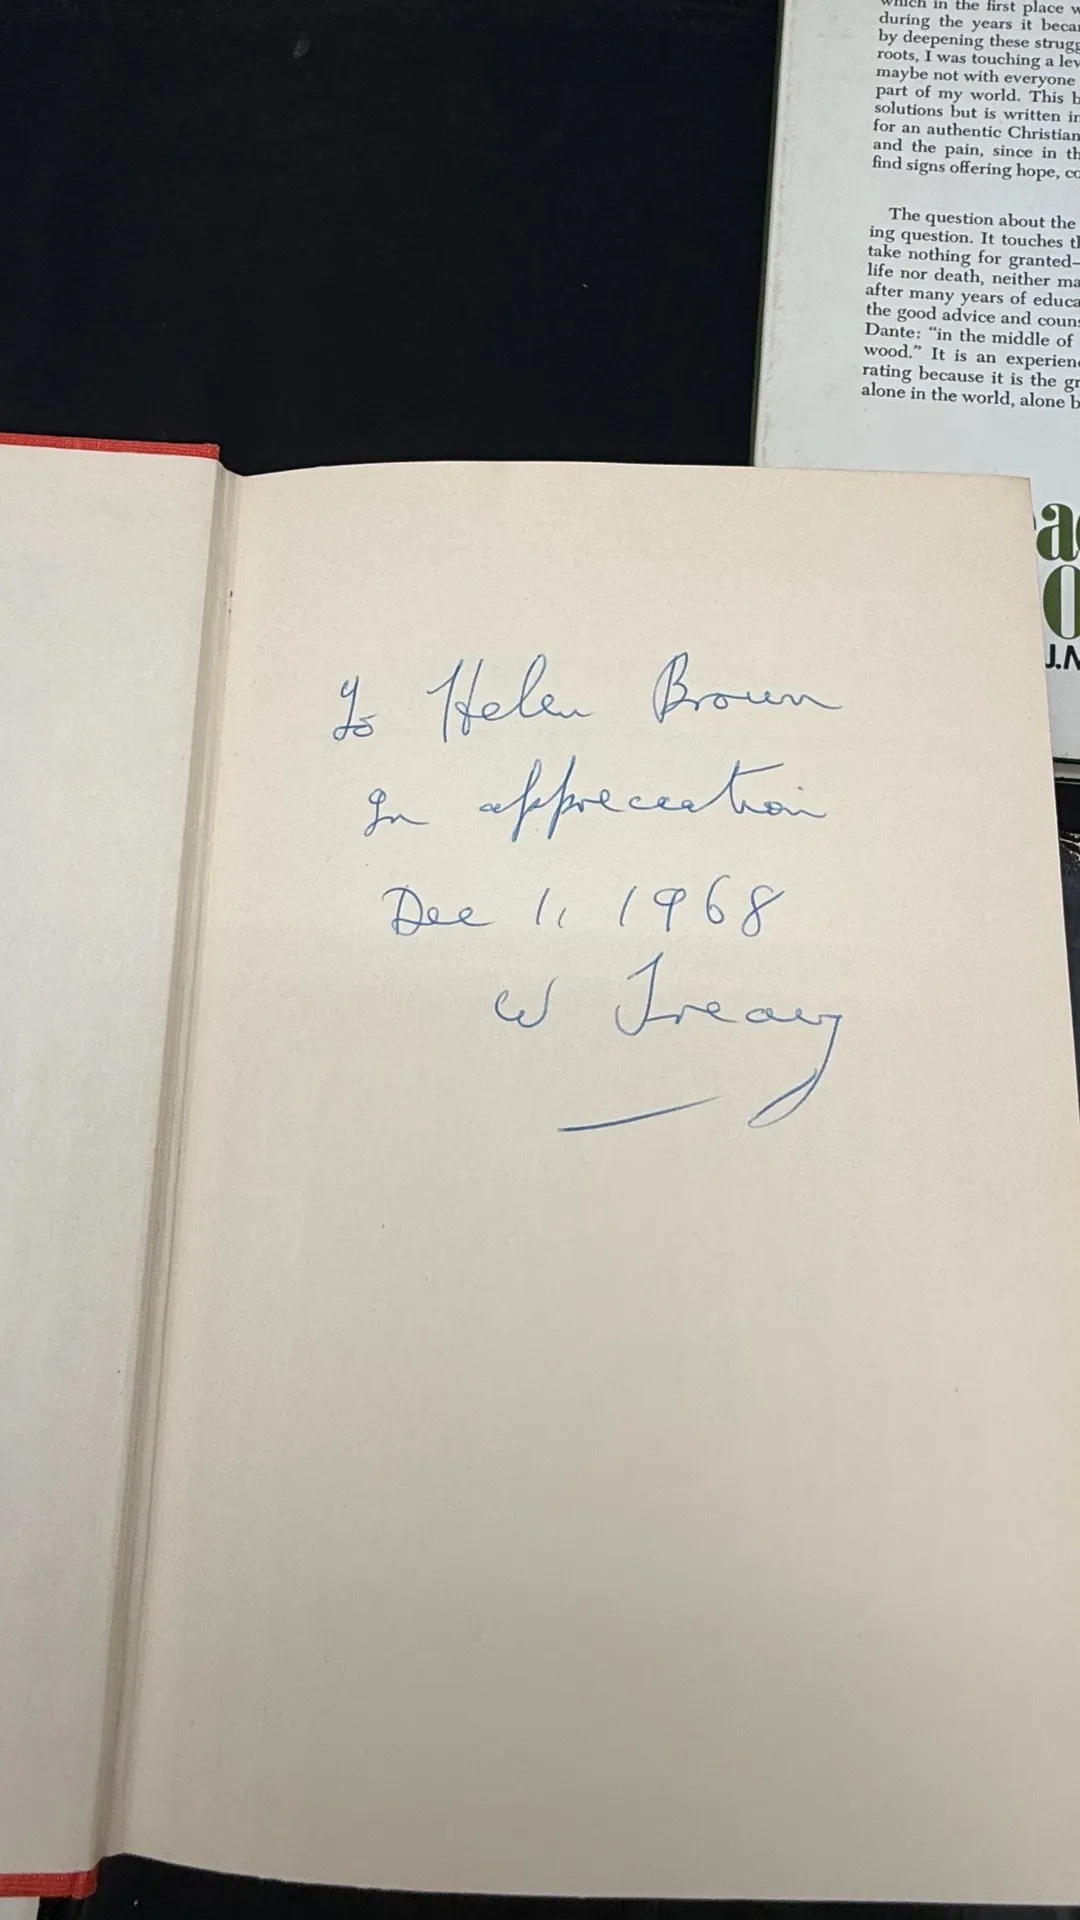 which in the first place w
during the years it becam
by deepening these strugg
roots, I was touching a lev
maybe not with everyone
part of my world. This b
solutions but is written in
for an authentic Christian
and the pain, since in th
find signs offering hope, co
The question about the
ing question. It touches th
take nothing for granted—
life nor death, neither ma
after many years of educa
the good advice and couns
Dante: “in the middle of
wood.” It is an experienc
rating because it is the gr
alone in the world, alone b
J.M
To Helen Brown
In appreciation
Dec 1, 1968
W